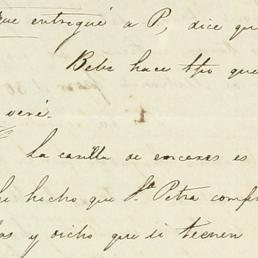 que entregué a P, dice que
Bebe hace tpo que
veré.
La casilla de encaxes es
he hecho que Sª Petra compr
los y dicho que si tienen